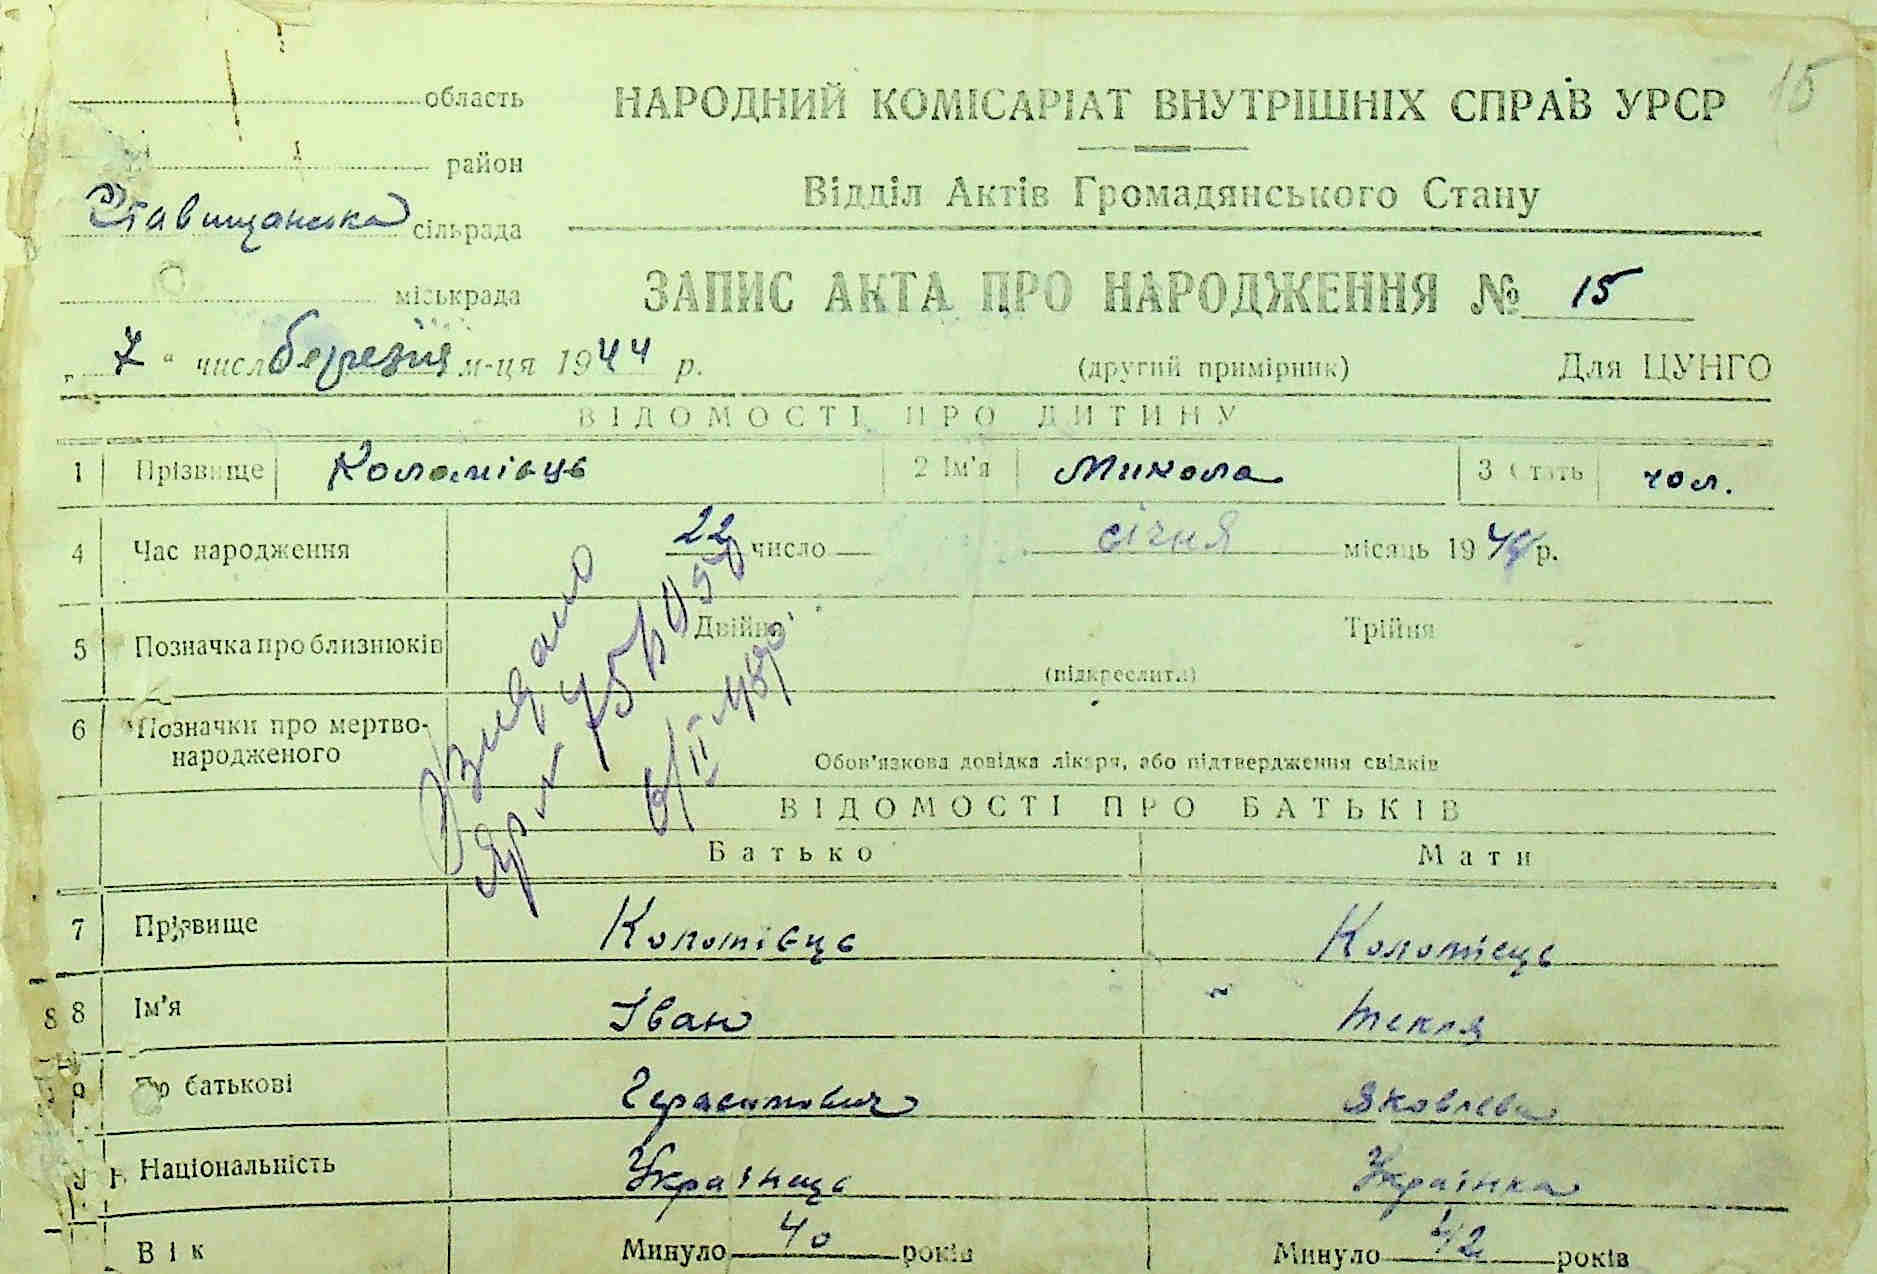 15
область
НАРОДНИЙ КОМІСАРІАТ ВНУТРІШНІХ СПРАВ УРСР
район
Відділ Актів Громадянського Стану
Ставищанська сільрада
міськрада
ЗАПИС АКТА ПРО НАРОДЖЕННЯ № 15
„ 7 “ числ березня м-ця 1944 р.
(другий примірник) Для ЦУНГО
ВІДОМОСТІ ПРО ДИТИНУ
1 Прізвище Коломієць 2 Ім'я Микола 3 Стать чол.
4 Час народження 22 число січня місяць 1944 р.
5 Позначка про близнюків Двійня Трійня
(підкреслити)
6 Позначки про мертво-
народженого
Обов'язкова довідка лікаря, або підтвердження свідків
ВІДОМОСТІ ПРО БАТЬКІВ
Батько Мати
7 Прізвище Коломієць Коломієць
8 8 Ім'я Іван Текля
9 По батькові Герасимович Яковлевна
Національність Українець Українка
Вік Минуло 40 років Минуло 42 років